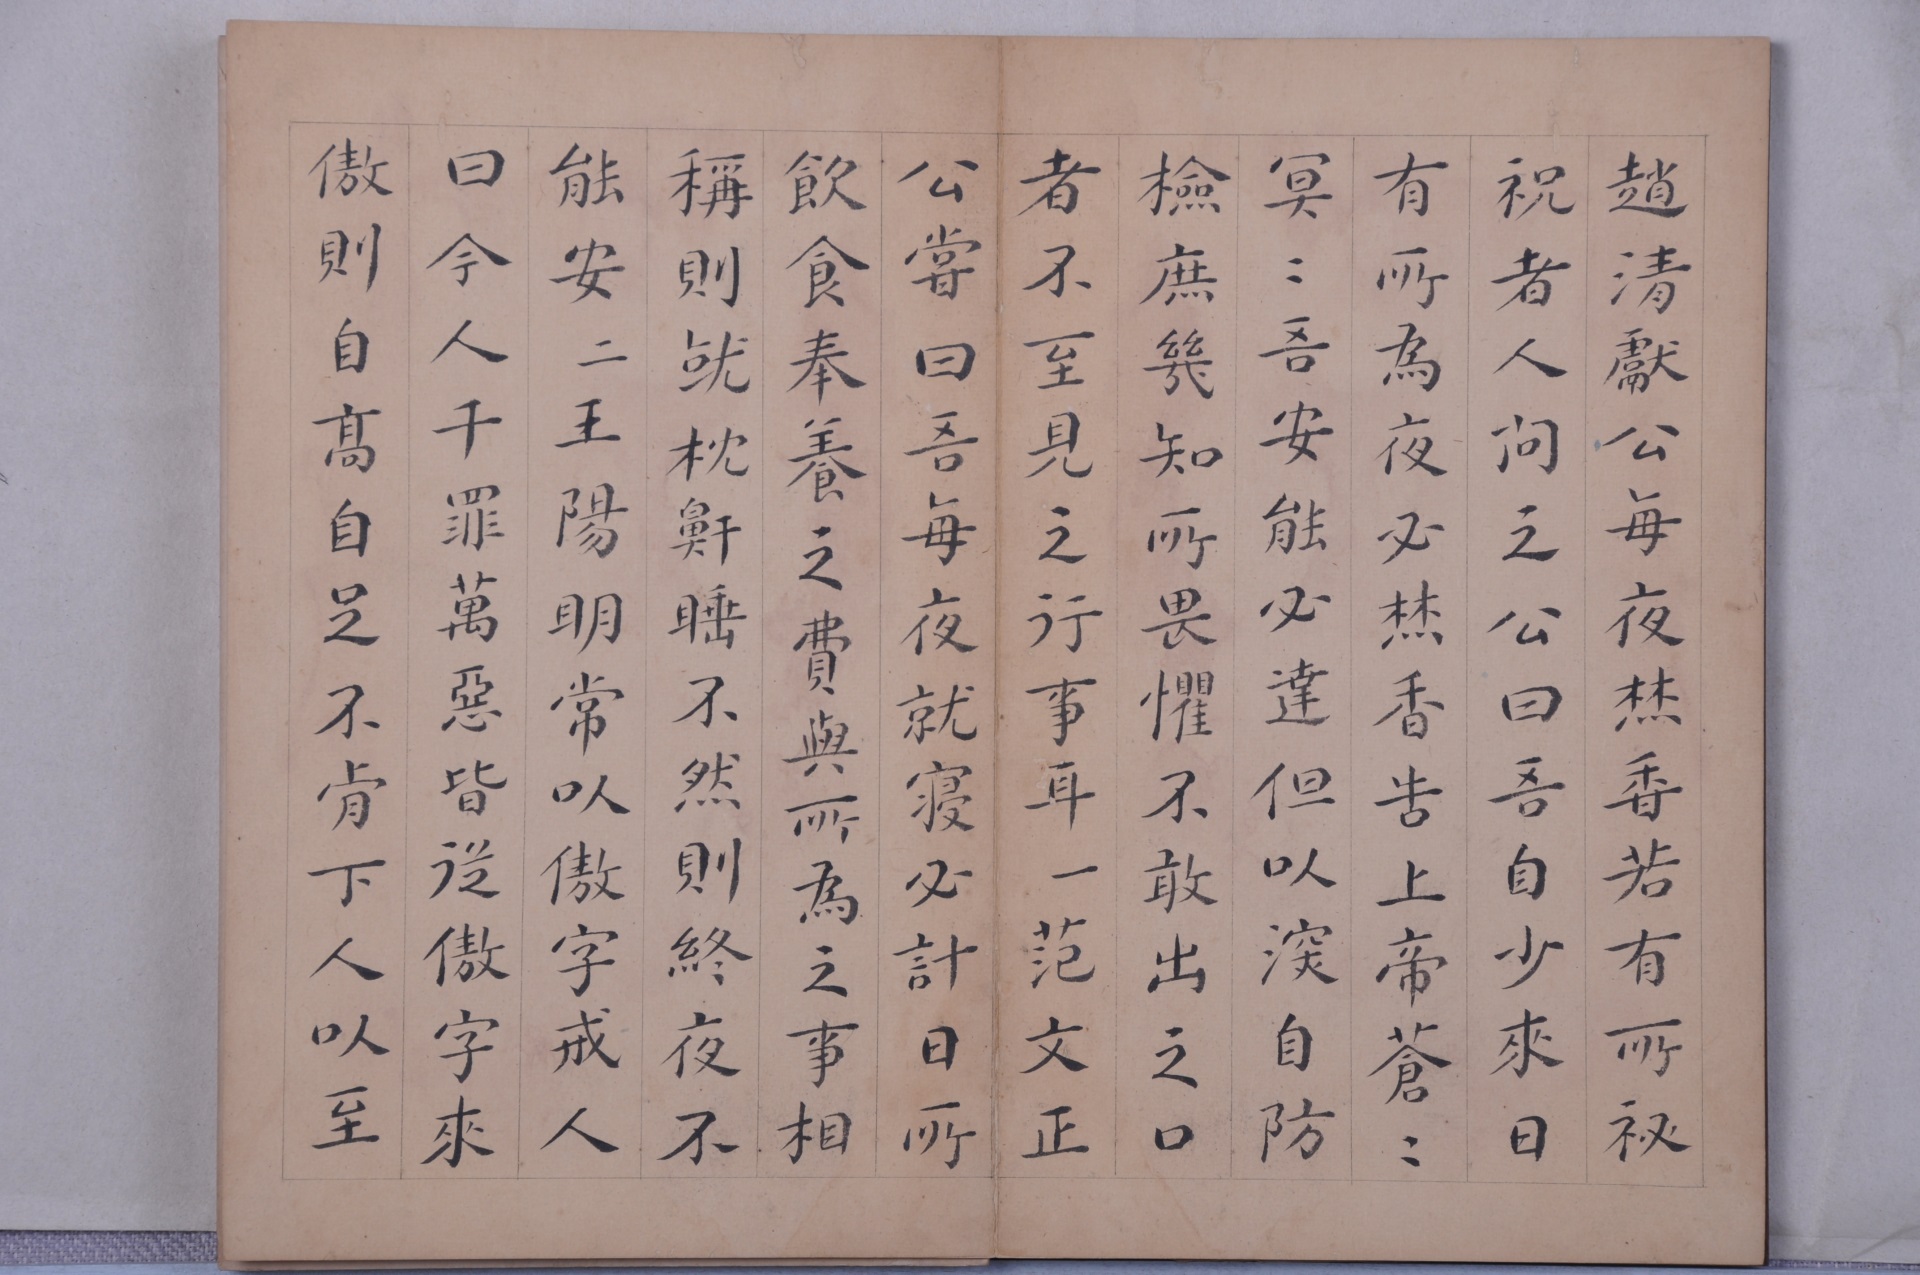 趙清獻公每夜焚香若有所祕
祝者人問之公曰吾自少來日
有所為夜必焚香告上帝蒼〻
冥〻吾安能必達但以深自防
檢庶幾知所畏懼不敢出之口
者不至見之行事耳一范文正
公嘗曰吾每夜就寢必計日所
飲食奉養之費與所為之事相
稱則就枕鼾睡不然則終夜不
能安二王陽明常以傲字戒人
曰今人千罪萬惡皆從傲字來
傲則自高自足不肯下人以至